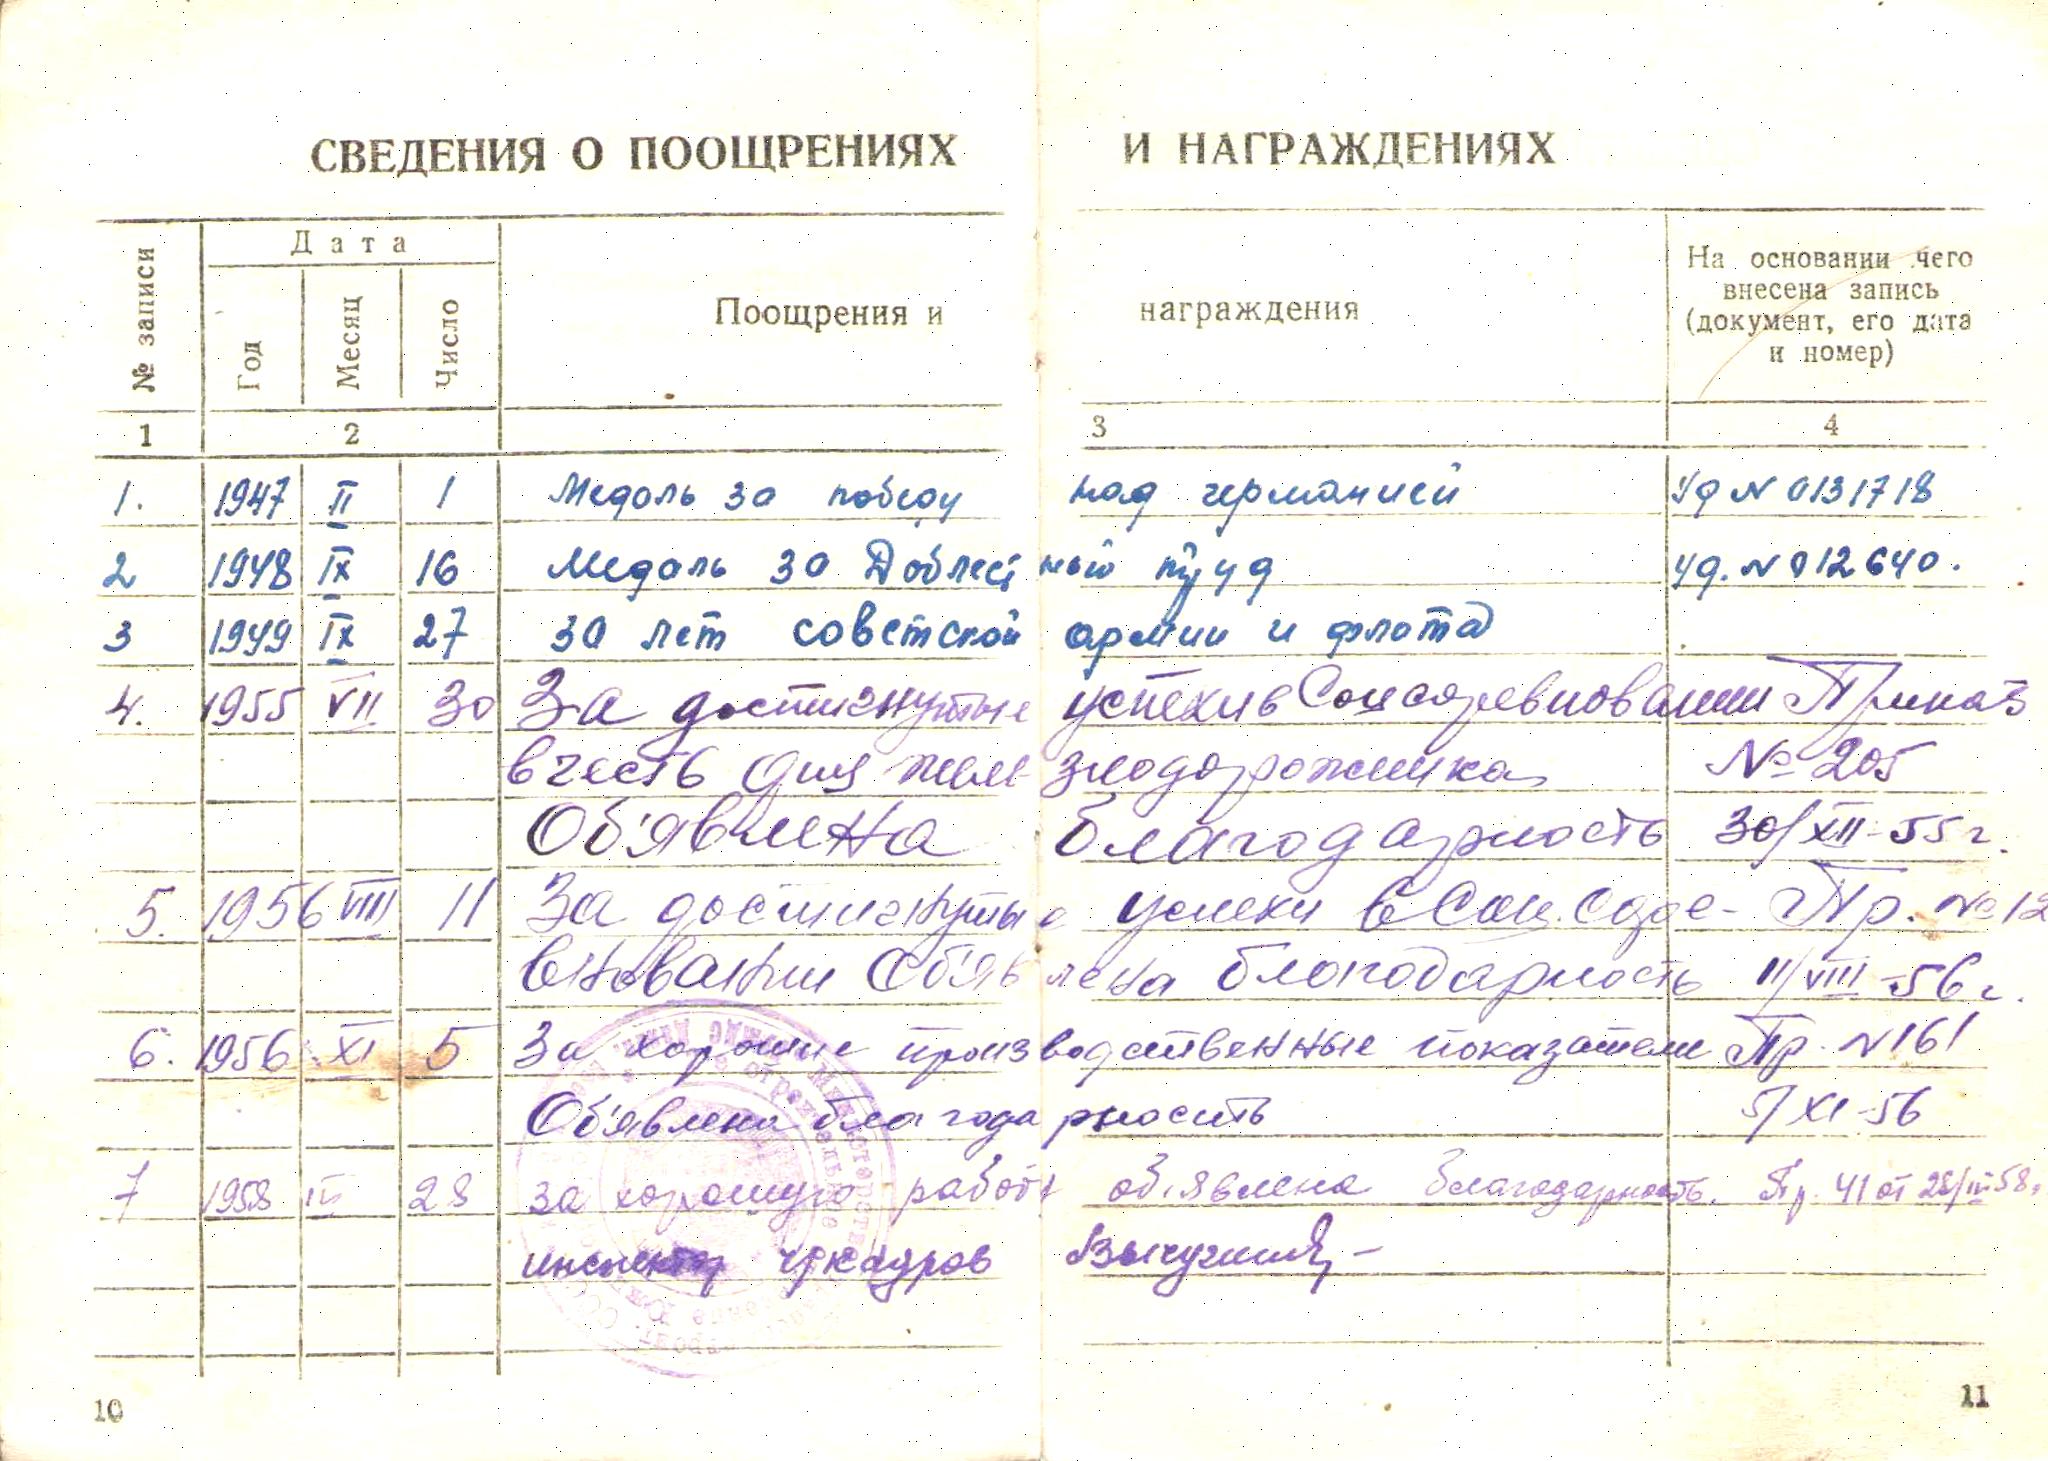 СВЕДЕНИЯ О ПООЩРЕНИЯХ И НАГРАЖДЕНИЯХ
№ записи
Дата
Год Месяц Число
Поощрения и награждения
На основании чего
внесена запись
(документ, его дата
и номер)
1 2 3 4
1. 1947 II 1 Медаль за победу над германией уд N 0131718
2 1948 IX 16 Медаль за Доблестный труд уд. N 012640.
3 1949 IX 27 30 лет советской армии и флота
4. 1955 VII 30 За достигнутые успехи в Соцсоревновании Приказ
в честь дня железнодорожника № 205
Об'явлена благодарность 30/XII-55г.
5. 1956 VIII 11 За достигнутые успехи в Соц. Сорре- Пр. №12
вновании Об'явлена благодарность 11/VIII-56г.
6. 1956 XI 5 За хорошие производственные показатели Пр. N 161
Об'явлена благодарность 5/XI-56
7 1958 III 28 За хорошую работу об'явлена благодарность. Пр. 41 от 28/III 58г
инспектор кадров
10
11